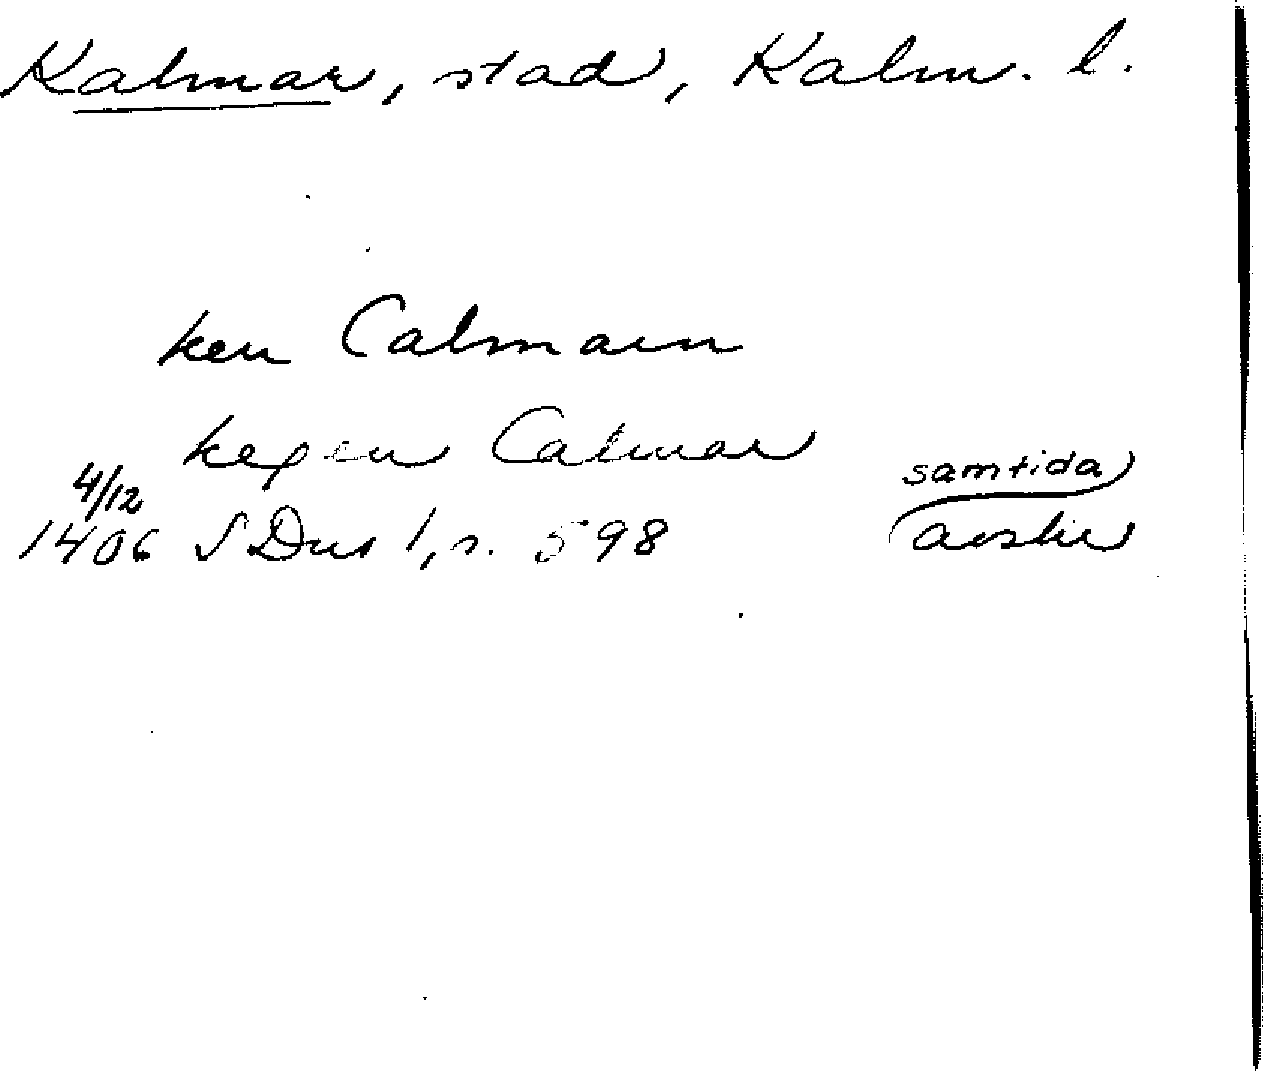 Kalmar, stad, Kalm. l.
ken Calmarn
kegen Calmar
samtida
4/12
1406 SDns 1, s. 598 avskr